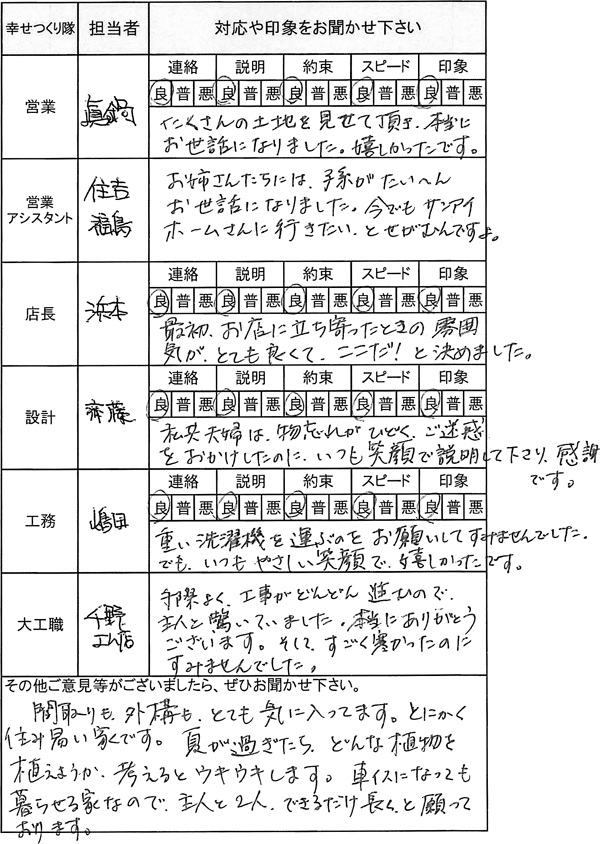 幸せつくり隊 担当者 対応や印象をお聞かせ下さい
連絡 説明 約束 スピード 印象
営業 眞鍋 良 普 悪 良 普 悪 良 普 悪 良 普 悪 良 普 悪
たくさんの土地を見せて頂き、本当に
お世話になりました。嬉しかったです。
営業アシスタント 住吉 福島
お姉さんたちには、子孫がたいへん
お世話になりました。今でもサンアイ
ホームさんに行きたい、とせがむんですよ。
連絡 説明 約束 スピード 印象
店長 浜本 良 普 悪 良 普 悪 良 普 悪 良 普 悪 良 普 悪
最初、お店に立ち寄ったときの雰囲
気が、とても良くて、ここだ!と決めました。
連絡 説明 約束 スピード 印象
設計 齊藤 良 普 悪 良 普 悪 良 普 悪 良 普 悪 良 普 悪
私共夫婦は、物忘れがひどく、ご迷惑
をおかけしたのに、いつも笑顔で説明して下さり、感謝
です。
連絡 説明 約束 スピード 印象
工務 嶋田 良 普 悪 良 普 悪 良 普 悪 良 普 悪 良 普 悪
重い洗濯機を運ぶのをお願いしてすみませんでした。
でも、いつもやさしい笑顔で、嬉しかったです。
大工職 千野 工ム店
手際よく、工事がどんどん進むので、
主人と驚いていました。本当にありがとう
ございます。そして、すごく寒かったのに
すみませんでした。
その他ご意見等がございましたら、ぜひお聞かせ下さい。
間取りも、外構も、とても気に入ってます。とにかく
住み易い家です。夏が過ぎたら、どんな植物を
植えようか、考えるとウキウキします。車イスになっても
暮らせる家なので、主人と2人、できるだけ長く、と願って
おります。